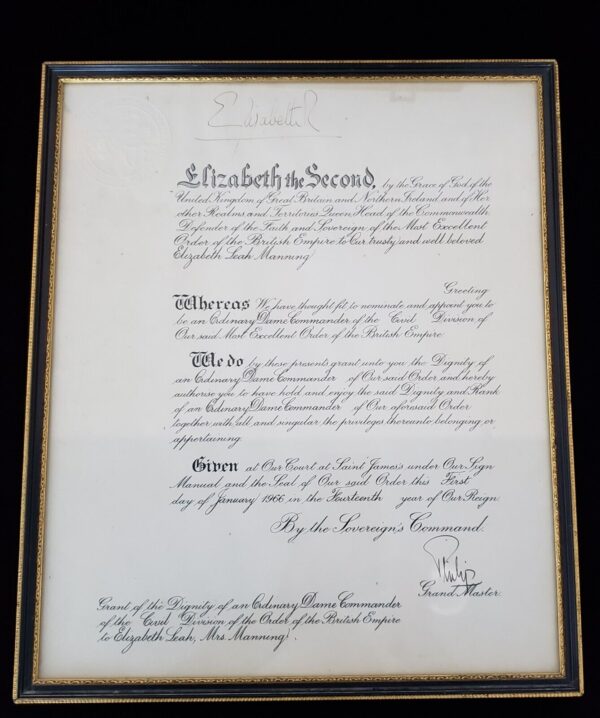 Elizabeth R
Elizabeth the Second, by the Grace of God of the
United Kingdom of Great Britain and Northern Ireland and of Her
other Realms and Territories Queen, Head of the Commonwealth,
Defender of the Faith and Sovereign of the Most Excellent
Order of the British Empire to Our trusty and well beloved
Elizabeth Leah Manning
Greeting
Whereas We have thought fit to nominate and appoint you to
be an Ordinary Dame Commander of the Civil Division of
Our said Most Excellent Order of the British Empire
We do by these presents grant unto you the Dignity of
an Ordinary Dame Commander of Our said Order and hereby
authorise you to have hold and enjoy the said Dignity and Rank
of an Ordinary Dame Commander of Our aforesaid Order
together with all and singular the privileges thereunto belonging or
appertaining.
Given at Our Court at Saint James's under Our Sign
Manual and the Seal of Our said Order this First
day of January 1966 in the Fourteenth year of Our Reign.
By the Sovereign's Command.
Philip
Grand Master.
Grant of the Dignity of an Ordinary Dame Commander
of the Civil Division of the Order of the British Empire
to Elizabeth Leah, Mrs. Manning.